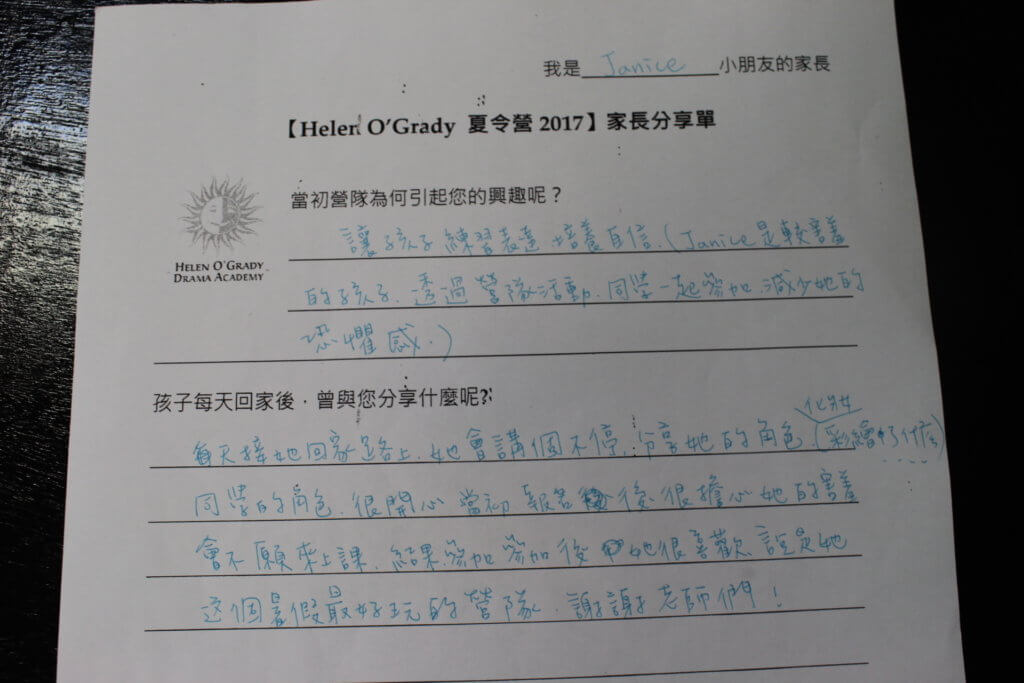 我是 Janice 小朋友的家長
【Helen O'Grady 夏令營 2017】家長分享單
當初營隊為何引起您的興趣呢？
HELEN O'GRADY
DRAMA ACADEMY
讓孩子練習表達.培養自信.(Janice是較害羞
的孩子.透過營隊活動.同學一起參加.減少她的
恐懼感.)
孩子每天回家後，曾與您分享什麼呢?
化妝
每天接她回家路上.她會講個不停.分享她的角色(彩繪
同學的角色.很開心當初報名後很擔心她的害羞
會不願來上課.結果參加參加後她很喜歡.說是她
這個暑假最好玩的營隊.謝謝老師們！